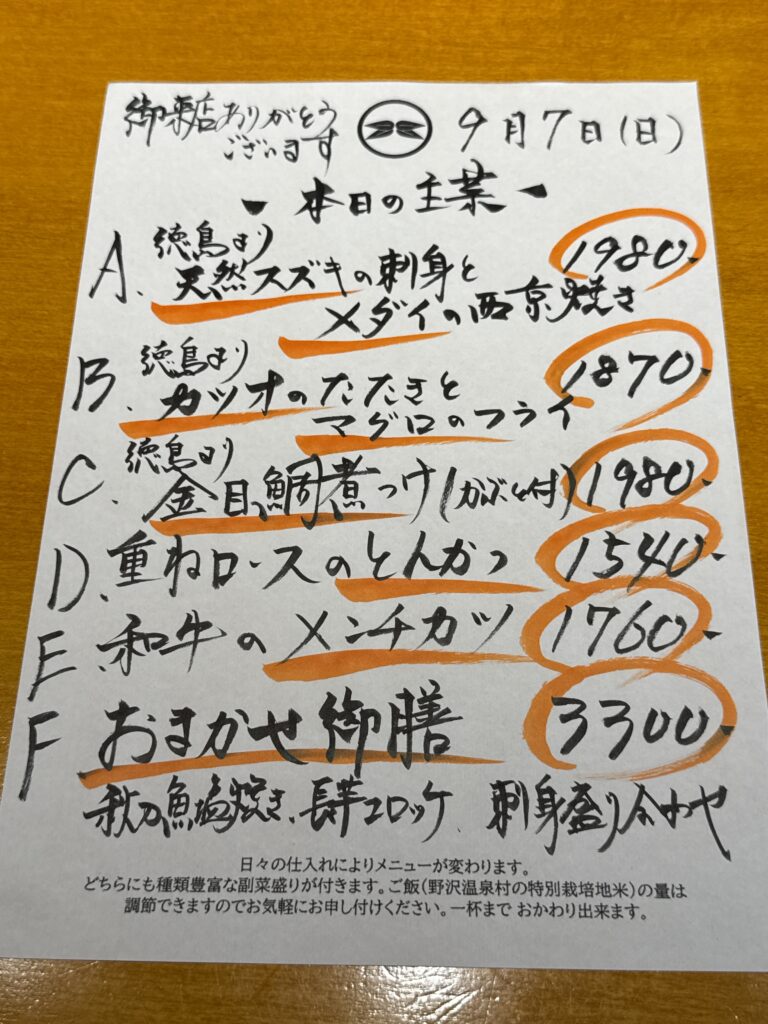 御来店ありがとう
ございます
9月7日(日)
本日の主菜
A. 徳島より
天然スズキの刺身と
メダイの西京焼き
1980-
B. 徳島より
カツオのたたきと
マグロのフライ
1870-
C. 徳島より
金目鯛煮つけ(かぶと付)
1980-
D. 重ねロースのとんかつ 1540-
E. 和牛のメンチカツ 1760-
F おまかせ御膳 3300-
秋刀魚塩焼き、長芋コロッケ、刺身盛り合わせ
日々の仕入れによりメニューが変わります。
どちらにも種類豊富な副菜盛りが付きます。ご飯(野沢温泉村の特別栽培地米)の量は
調節できますのでお気軽にお申し付けください。一杯まで おかわり出来ます。